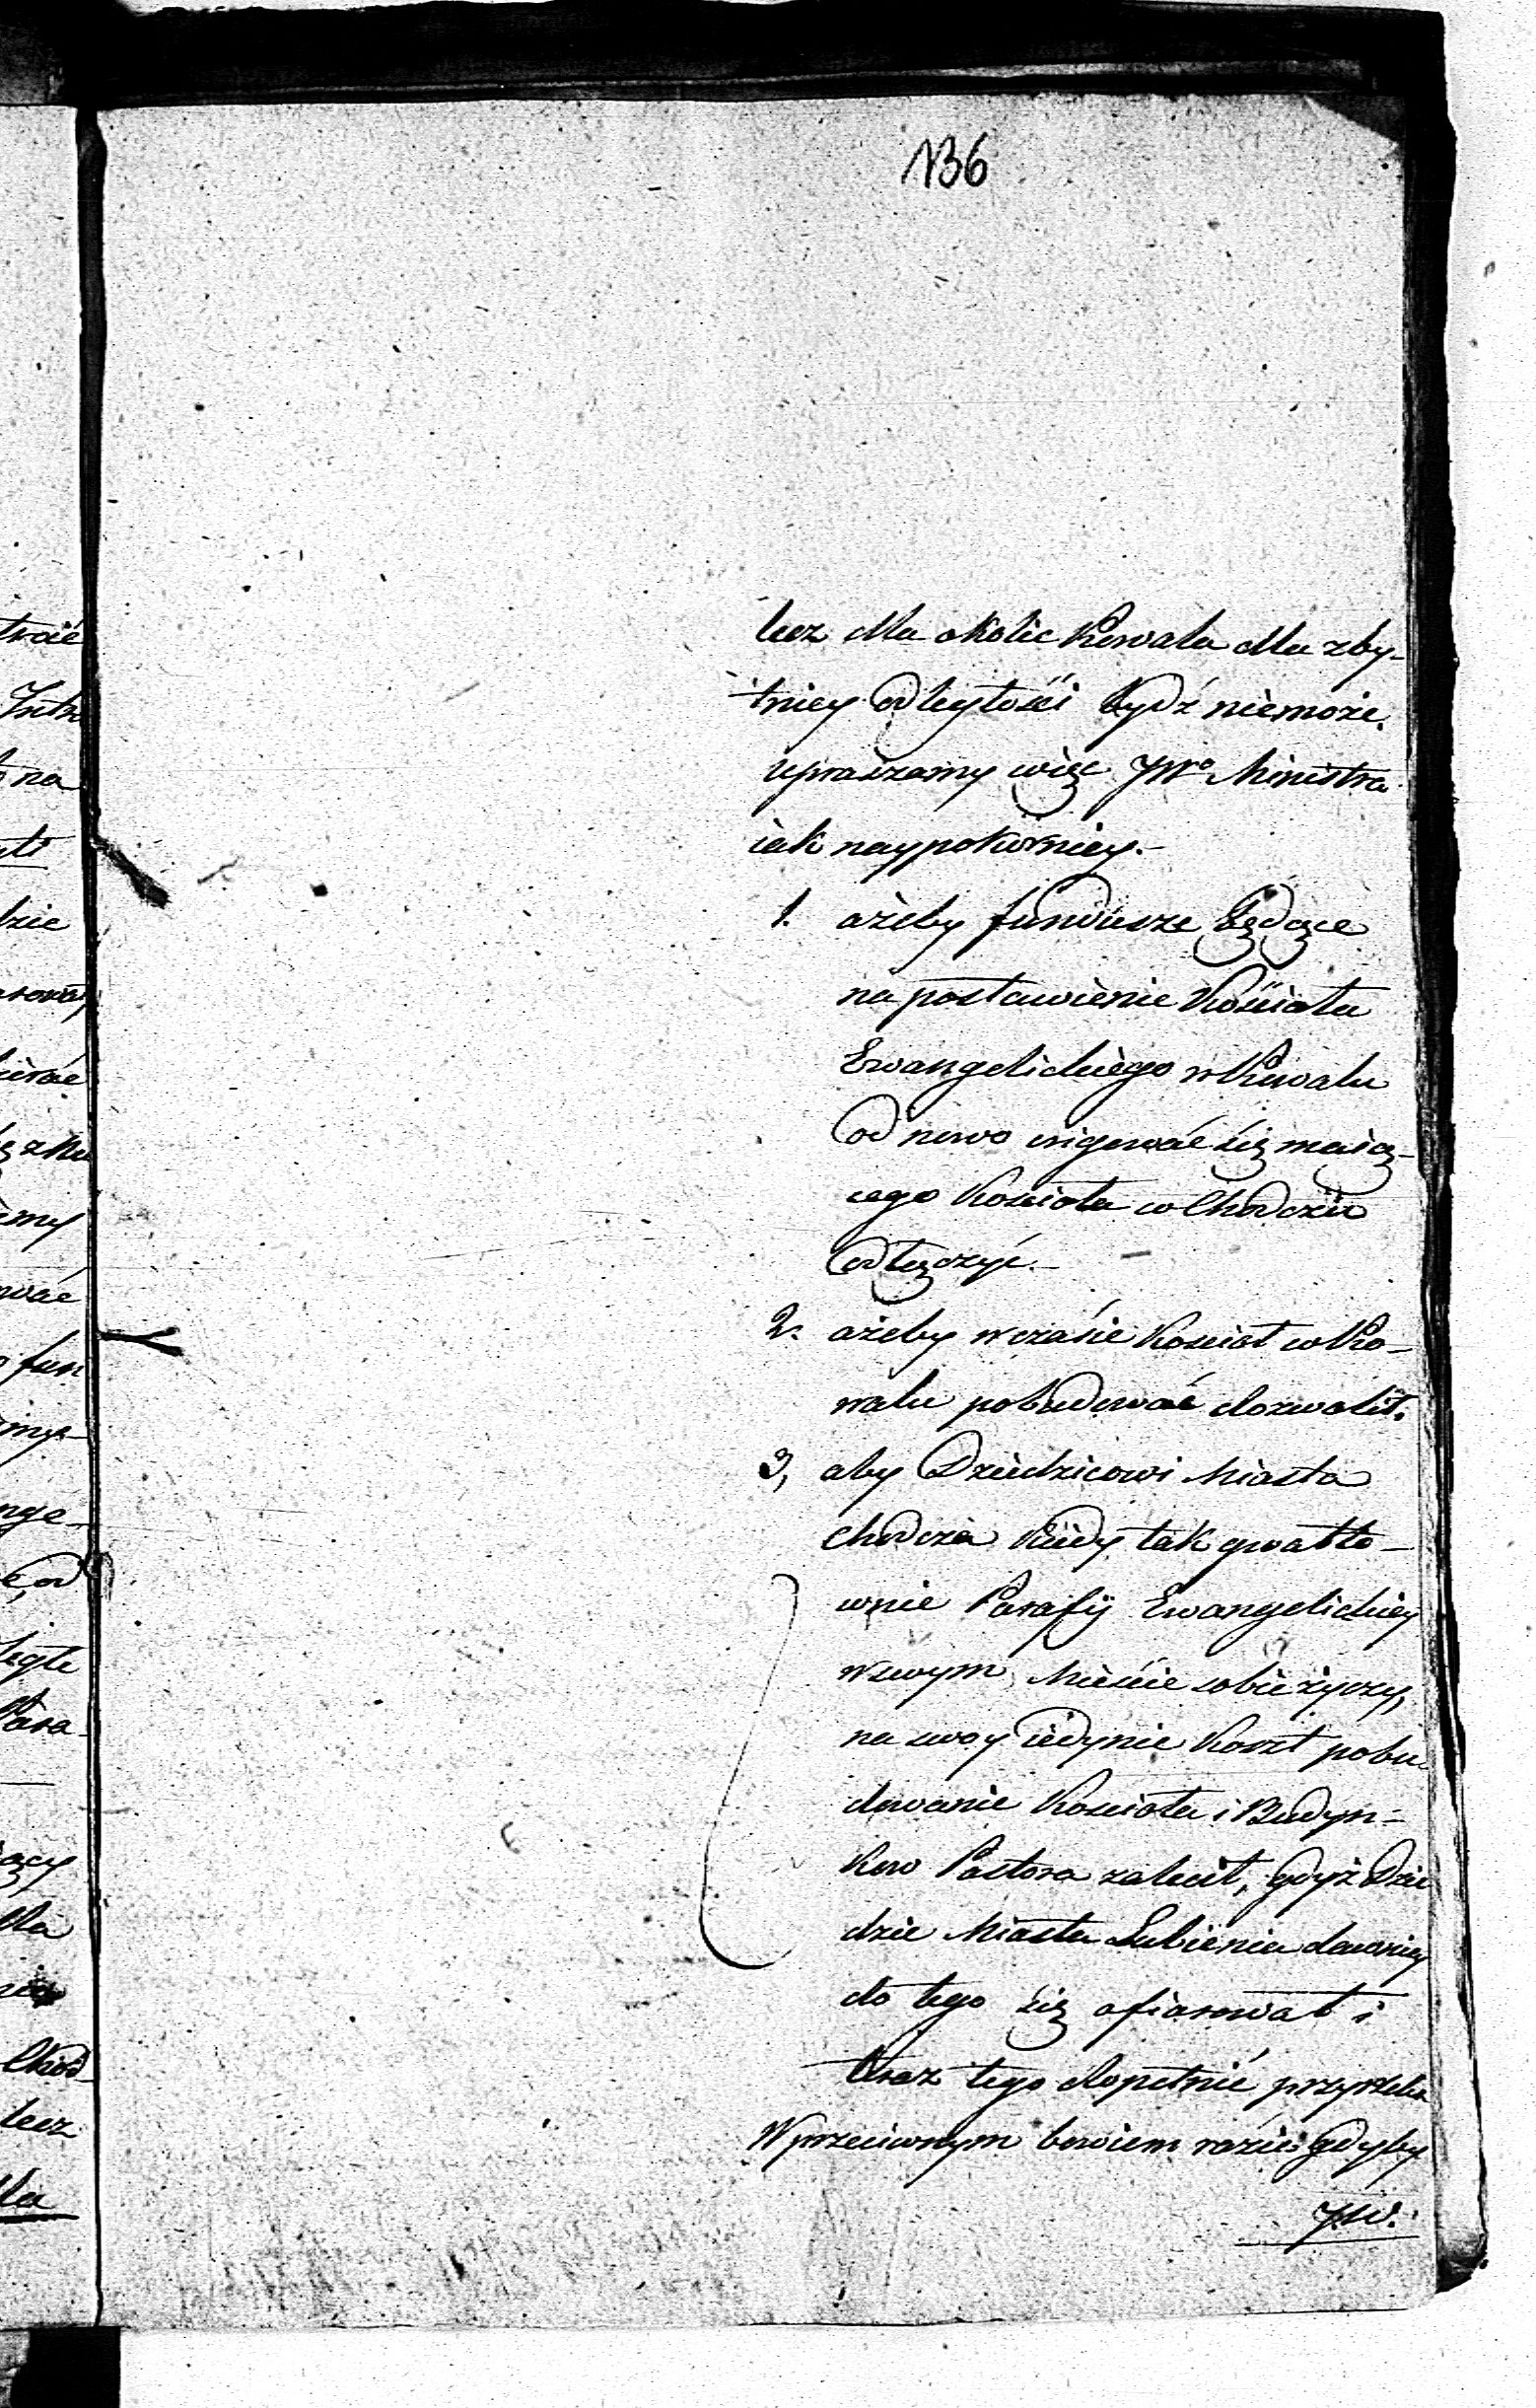 136
lecz dla okolic Kowala dla zby-
tniey odległości bydź niemoże.
upraszamy więc JWo Ministra
iak naypokorniey.-
1. ażeby fundusze będące
na postawienie Kościoła
Ewangelickiego w Kowalu
od nowo erigować się maią-
cego Kościoła w Chodczu
odłączyć.-
2. ażeby wczasie Koscioł w Ko-
walu pobudować dozwolił.
3, aby Dziedzicowi Miasta
Chodcza kiedy tak gwałto-
wnie Parafij Ewangelickiey
w swym Mieście sobie życzy,
na swoy iedynie koszt pobu-
dowanie Koscioła i Budyn-
kow Pastora zalecił, gdyż Dzie
dzic Miasta Lubienia dawniey
do tego się ofiarował i
teraz tego dopełnić przyrzeka
W przeciwnym bowiem razie gdyby
JW.
trwać
na
dzie
zmy
wać
fun
nge-
od
ległe
Para-
ący
dla
Chod-
lecz
dla